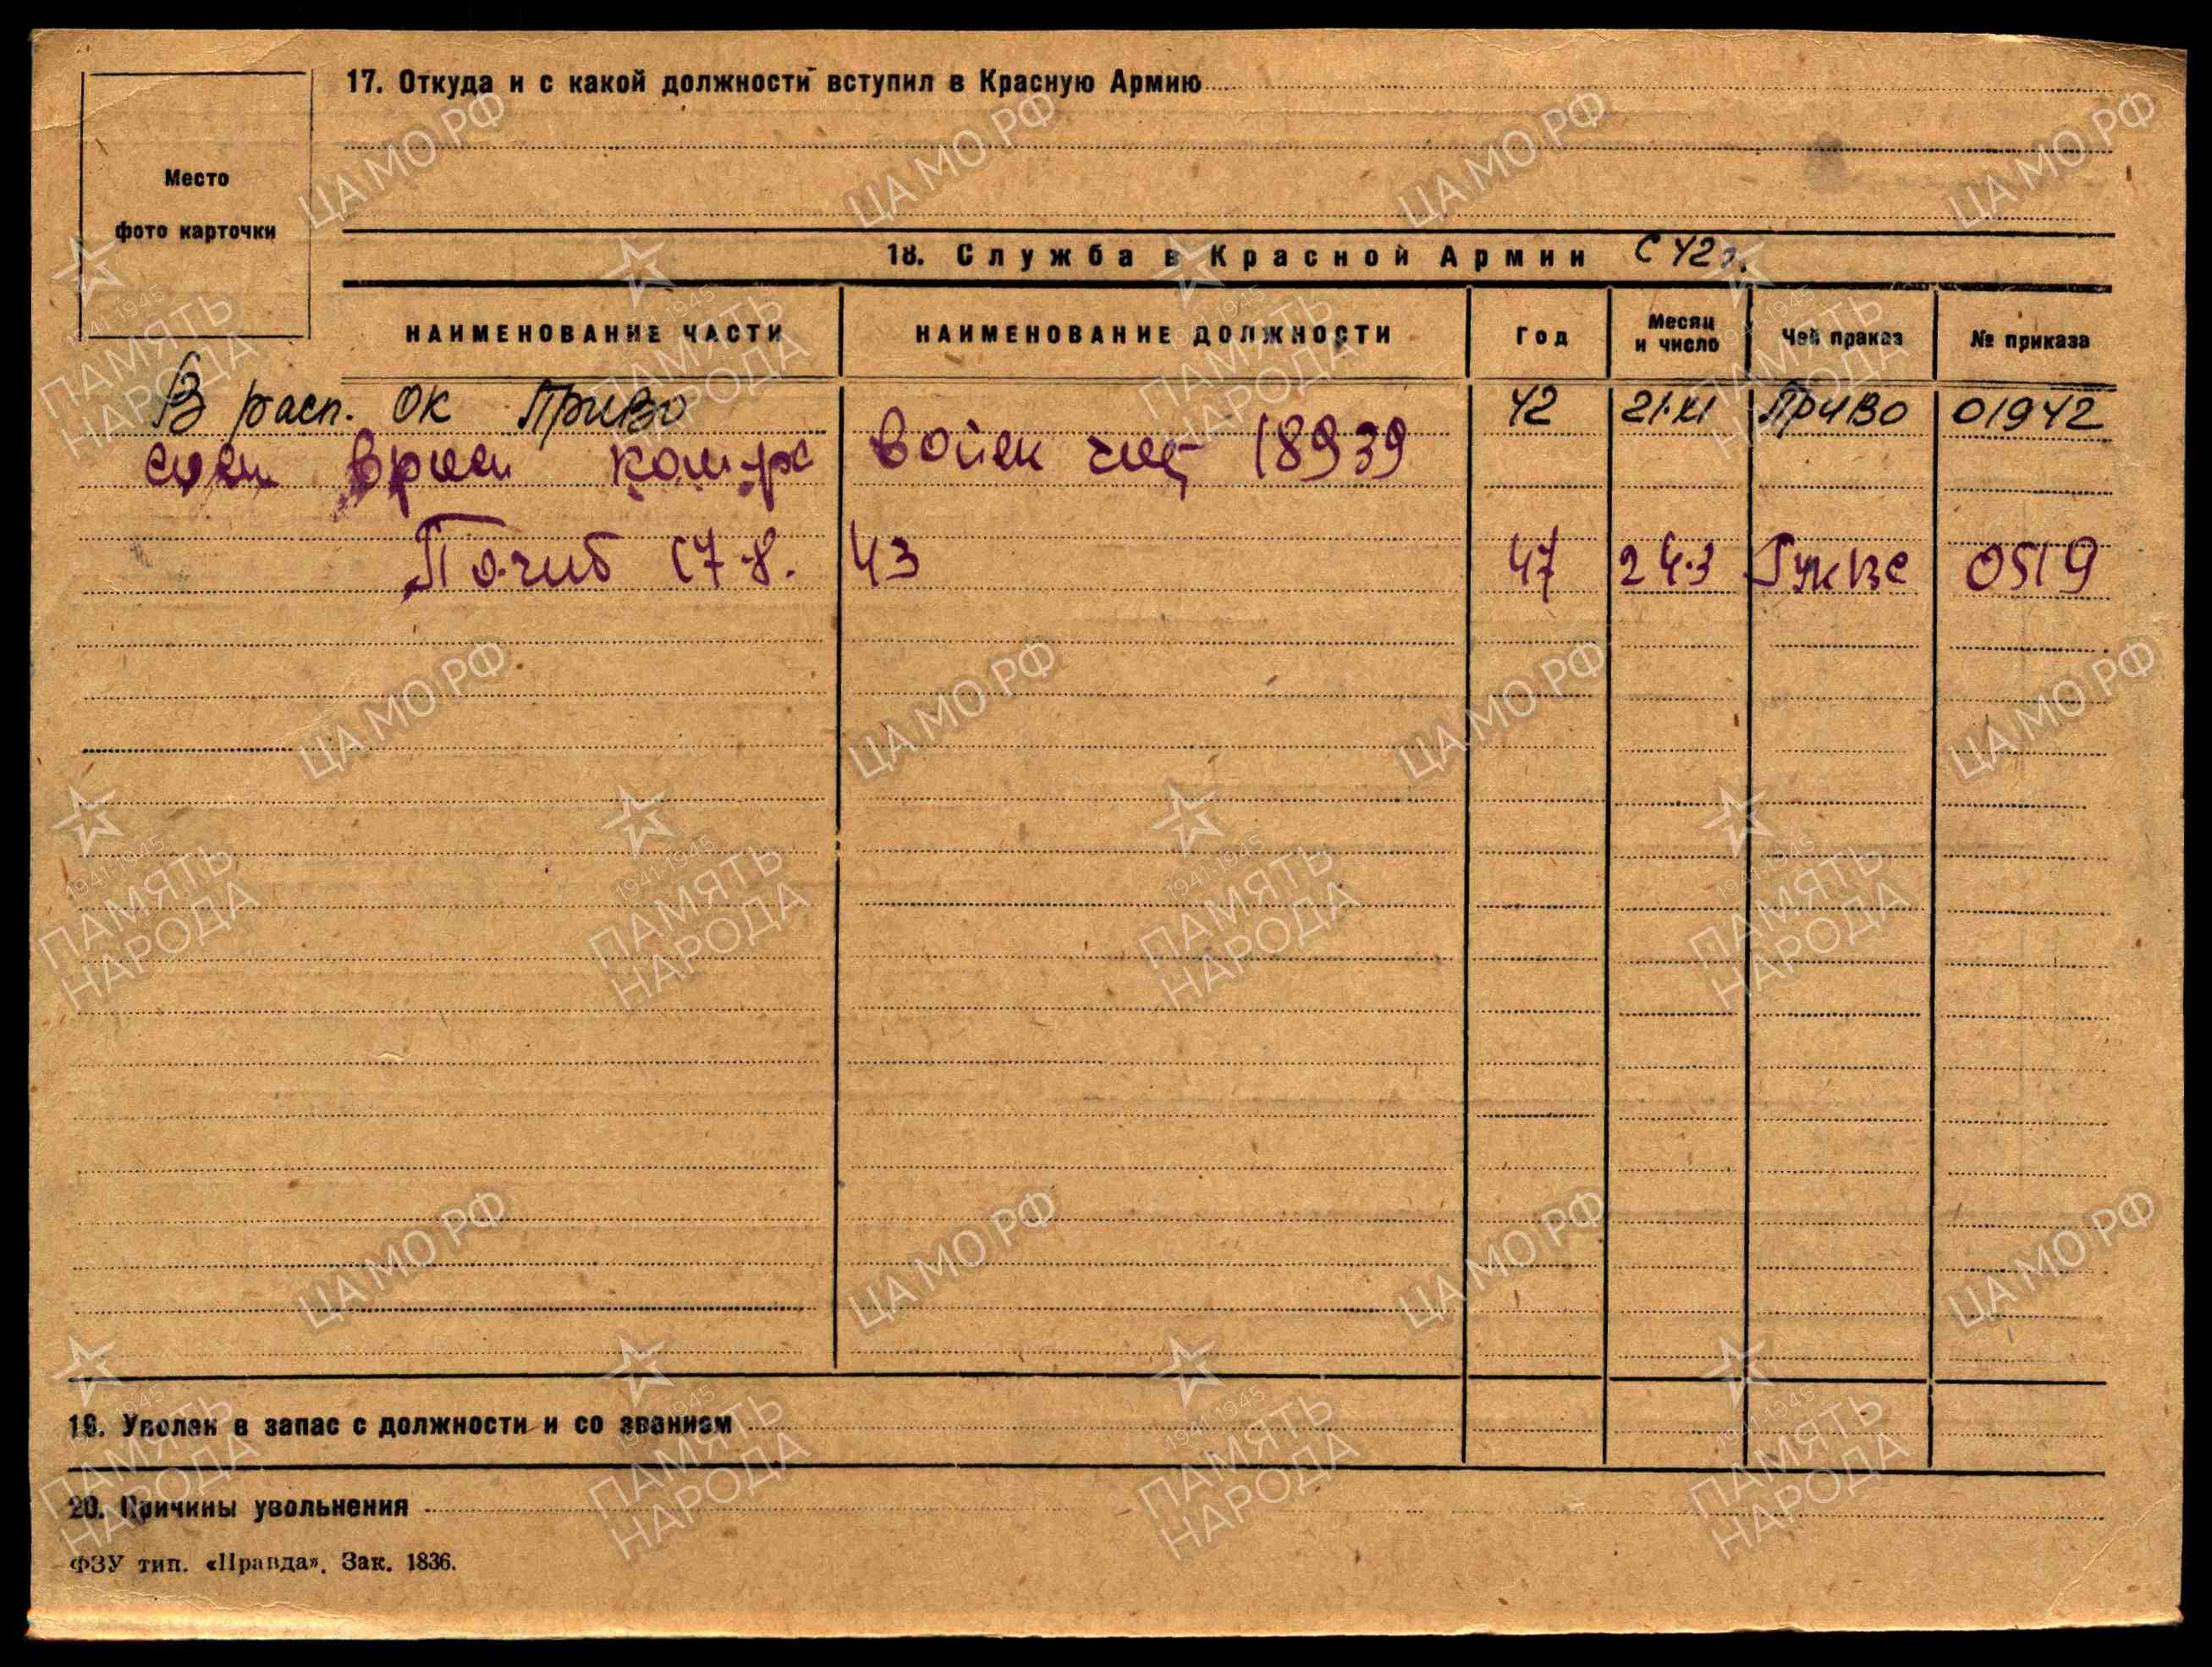 17. Откуда и с какой должности вступил в Красную Армию
Место
фото карточки
18. Служба в Красной Армии С 42 г.
НАИМЕНОВАНИЕ ЧАСТИ НАИМЕНОВАНИЕ ДОЛЖНОСТИ Год Месяц и число Чей праказ № приказа
В расп. ОК ПриВО 42 21.XI ПРИВО 01942
войск 18939
Погиб 17.8.43 47 24.3 ГУКВС 0519
19. Уволен в запас с должности и со званием
20. Причины увольнения
ФЗУ тип. «Правда». Зак. 1836.
ЦА МО РФ
1941-1945
ПАМЯТЬ
НАРОДА